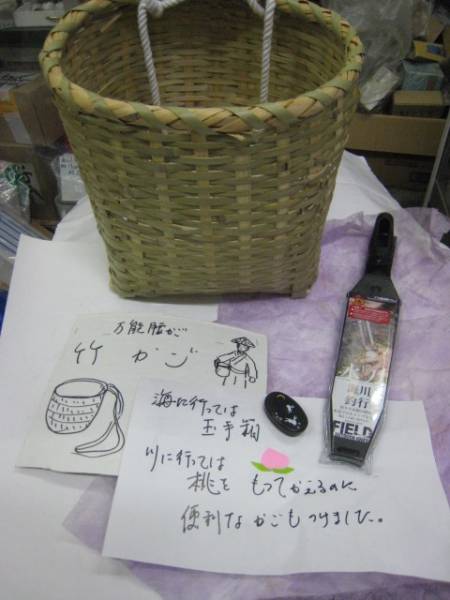 万能腰かご
竹かご
海に行っては
玉手箱
川に行っては
桃を もってかえるのに
便利な かごもつけました。
川
釣行
FIELD